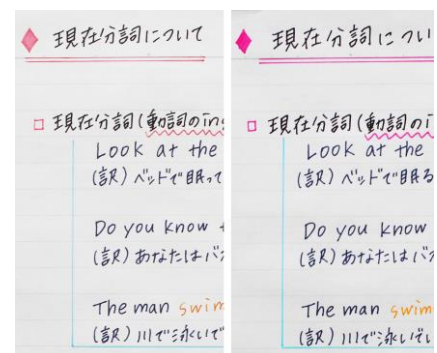 現在分詞について
現在分詞(動詞のing
Look at the
(訳) ベッドで眠って
Do you know
(訳) あなたはバ
The man swim
(訳) 川で泳いで
現在分詞につい
現在分詞(動詞のi
Look at the
(訳) ベッドで眠る
Do you know
(訳) あなたはバ
The man swim
(訳) 川で泳いでい